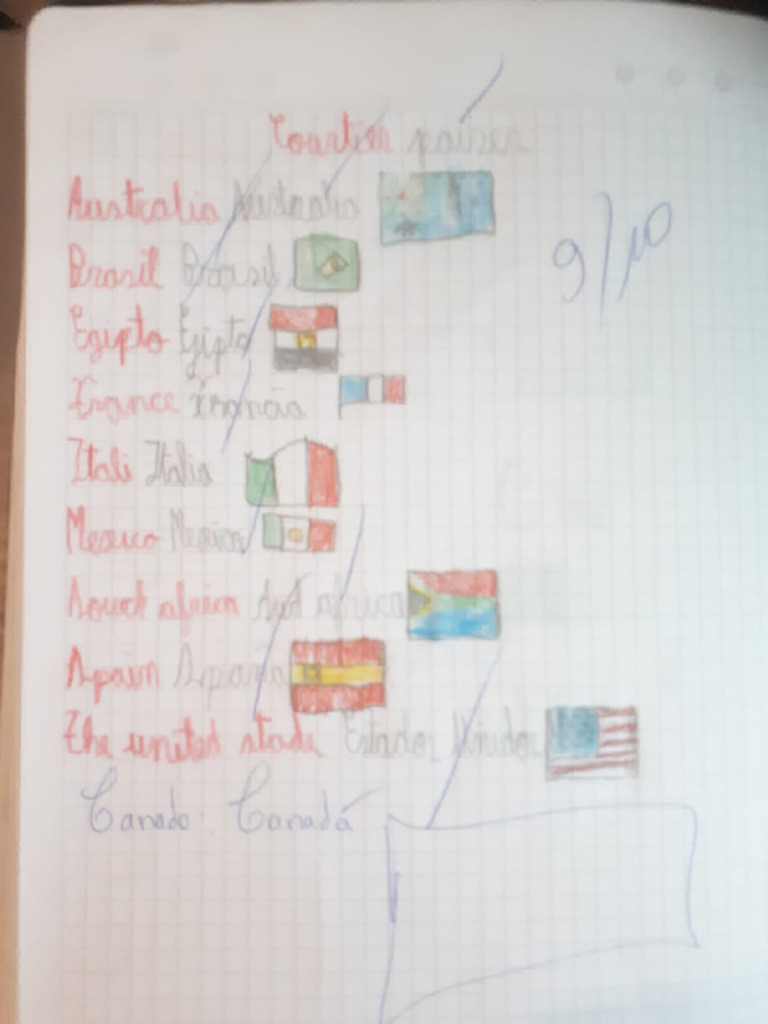 Countier paises
Australia Australia
9/10
Brasil Brasil
Egipto Egipto
France Francia
Itali Italia
Mexico Mexico
Souch africa Sud africa
Spain España
The united stads Estados Unidos
Canada: Canadá